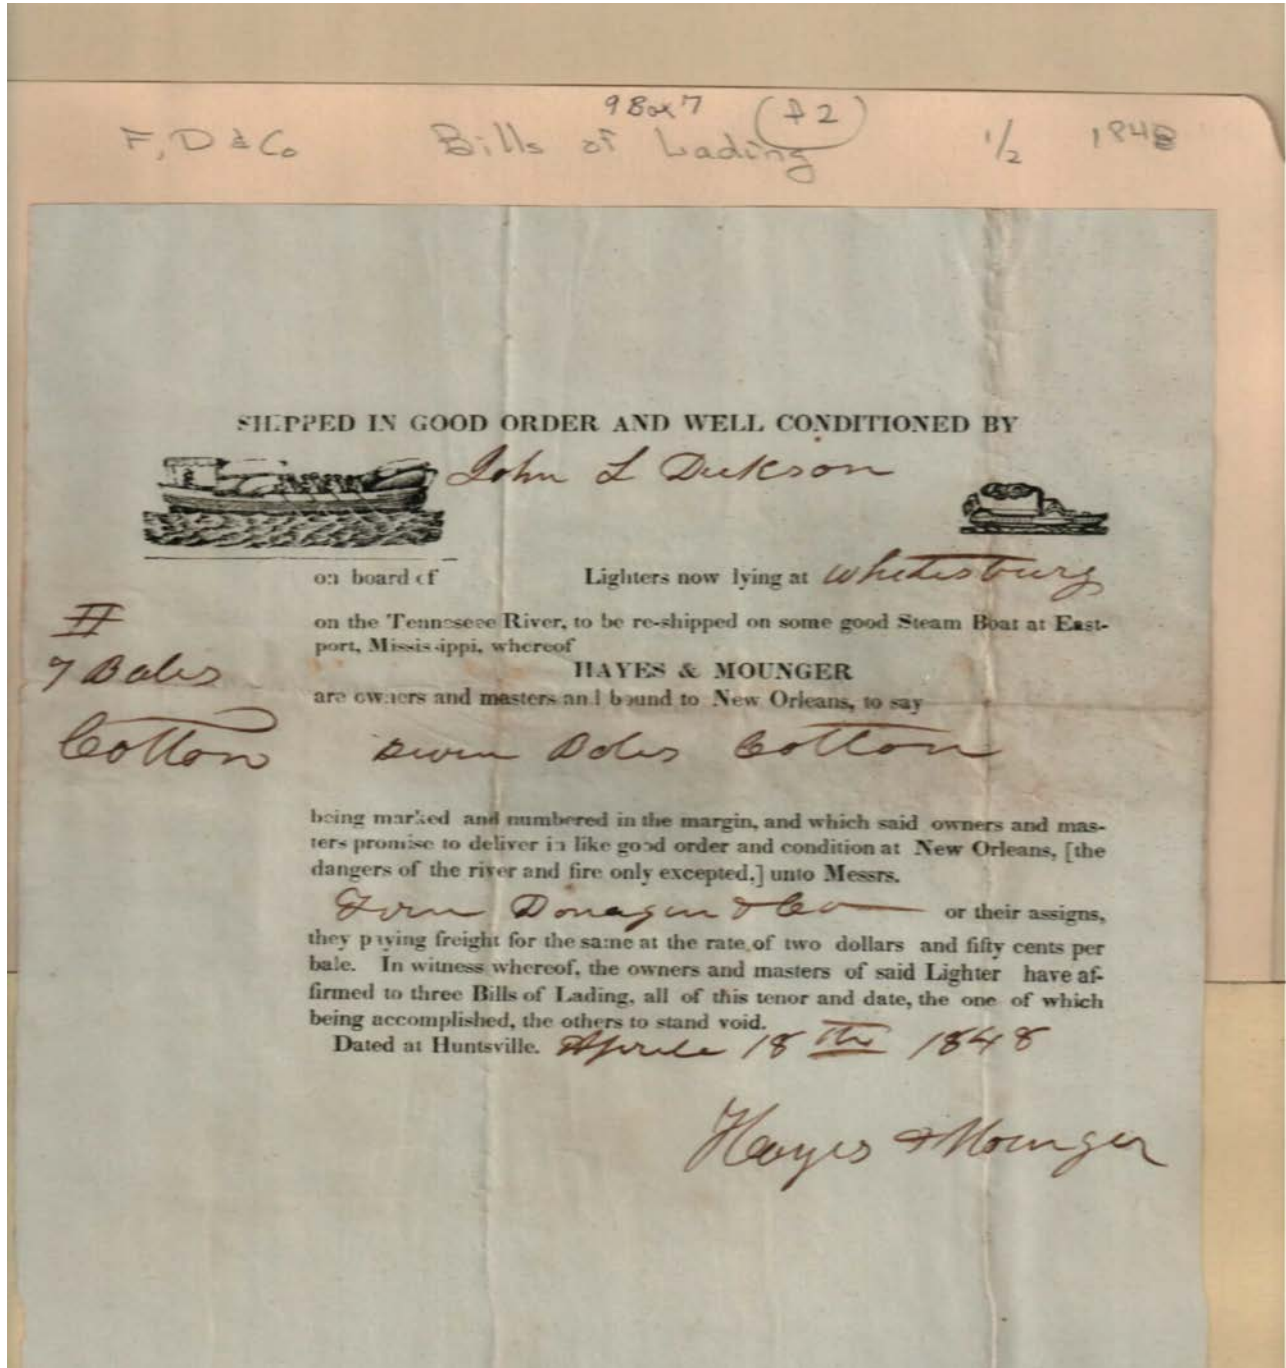 9 Box 7 (f 2)
F, D & Co Bills of Lading 1/2 1848
SHIPPED IN GOOD ORDER AND WELL CONDITIONED BY
John L Dickson
on board of Lighters now lying at Whitesburg
on the Tennessee River, to be re-shipped on some good Steam Boat at East-
port, Mississippi, whereof
HAYES & MOUNGER
are owners and masters and bound to New Orleans, to say
7 Bales
Cotton Seven Bales Cotton
being marked and numbered in the margin, and which said owners and mas-
ters promise to deliver in like good order and condition at New Orleans, [the
dangers of the river and fire only excepted,] unto Messrs.
Fern Donegan & Co or their assigns,
they paying freight for the same at the rate of two dollars and fifty cents per
bale. In witness whereof, the owners and masters of said Lighter have af-
firmed to three Bills of Lading, all of this tenor and date, the one of which
being accomplished, the others to stand void.
Dated at Huntsville. Aprile 18th 1848
Hayes & Mounger